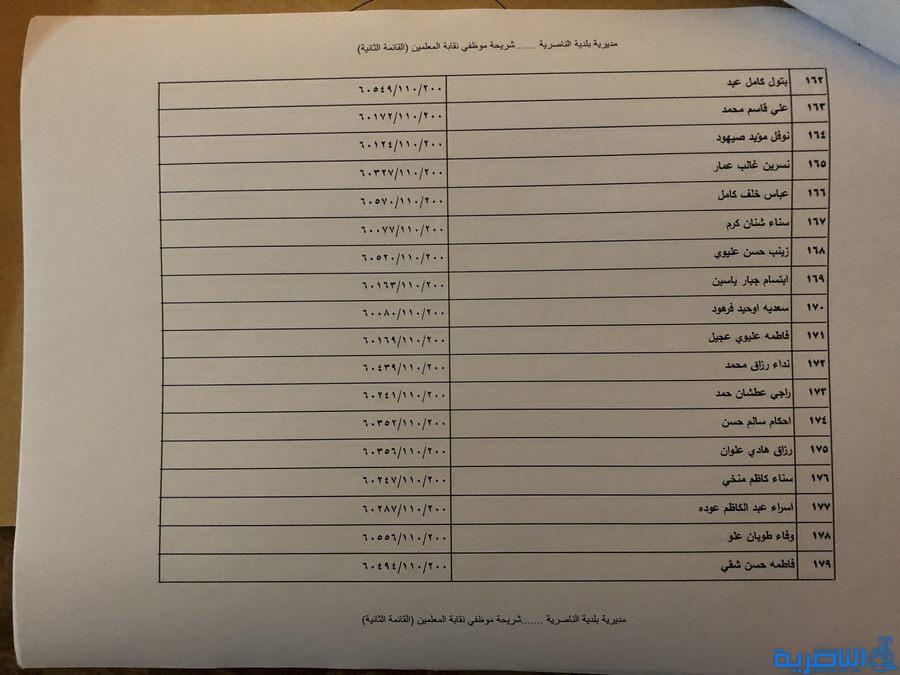 مديرية بلدية الناصرية .......شريحة موظفي نقابة المعلمين (القائمة الثانية)
١٦٢ بتول كامل عبد ٦٠٥٤٩/١١٠/٢٠٠
١٦٣ علي قاسم محمد ٦٠١٧٢/١١٠/٢٠٠
١٦٤ نوفل مؤيد صيهود ٦٠١٢٤/١١٠/٢٠٠
١٦٥ نسرين غالب عمار ٦٠٣٢٧/١١٠/٢٠٠
١٦٦ عباس خلف كامل ٦٠٥٧٠/١١٠/٢٠٠
١٦٧ سناء شنان كرم ٦٠٠٧٧/١١٠/٢٠٠
١٦٨ زينب حسن عليوي ٦٠٥٢٠/١١٠/٢٠٠
١٦٩ ابتسام جبار ياسين ٦٠١٦٣/١١٠/٢٠٠
١٧٠ سعديه اوحيد فرهود ٦٠٠٨٠/١١٠/٢٠٠
١٧١ فاطمه عليوي عجيل ٦٠١٦٩/١١٠/٢٠٠
١٧٢ نداء رزاق محمد ٦٠٤٣٩/١١٠/٢٠٠
١٧٣ راجي عطشان حمد ٦٠٢٤١/١١٠/٢٠٠
١٧٤ احكام سالم حسن ٦٠٣٥٢/١١٠/٢٠٠
١٧٥ رزاق هادي علوان ٦٠٣٥٦/١١٠/٢٠٠
١٧٦ سناء كاظم منخي ٦٠٢٤٧/١١٠/٢٠٠
١٧٧ اسراء عبد الكاظم عوده ٦٠٢٨٧/١١٠/٢٠٠
١٧٨ وفاء طوبان علو ٦٠٥٥٦/١١٠/٢٠٠
١٧٩ فاطمه حسن شقي ٦٠٤٩٤/١١٠/٢٠٠
مديرية بلدية الناصرية .......شريحة موظفي نقابة المعلمين (القائمة الثانية)
الناصرية